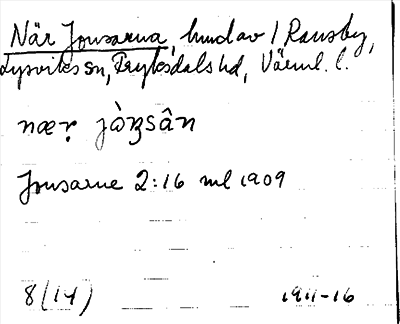 När Jonsarna, hmd av / Ransby,
Lysviks sn, Fryksdals hd, Värml. l.
næṛ jὰꞃsân
Jonsarne 2:16 ml 1909
8(14) 1911-16